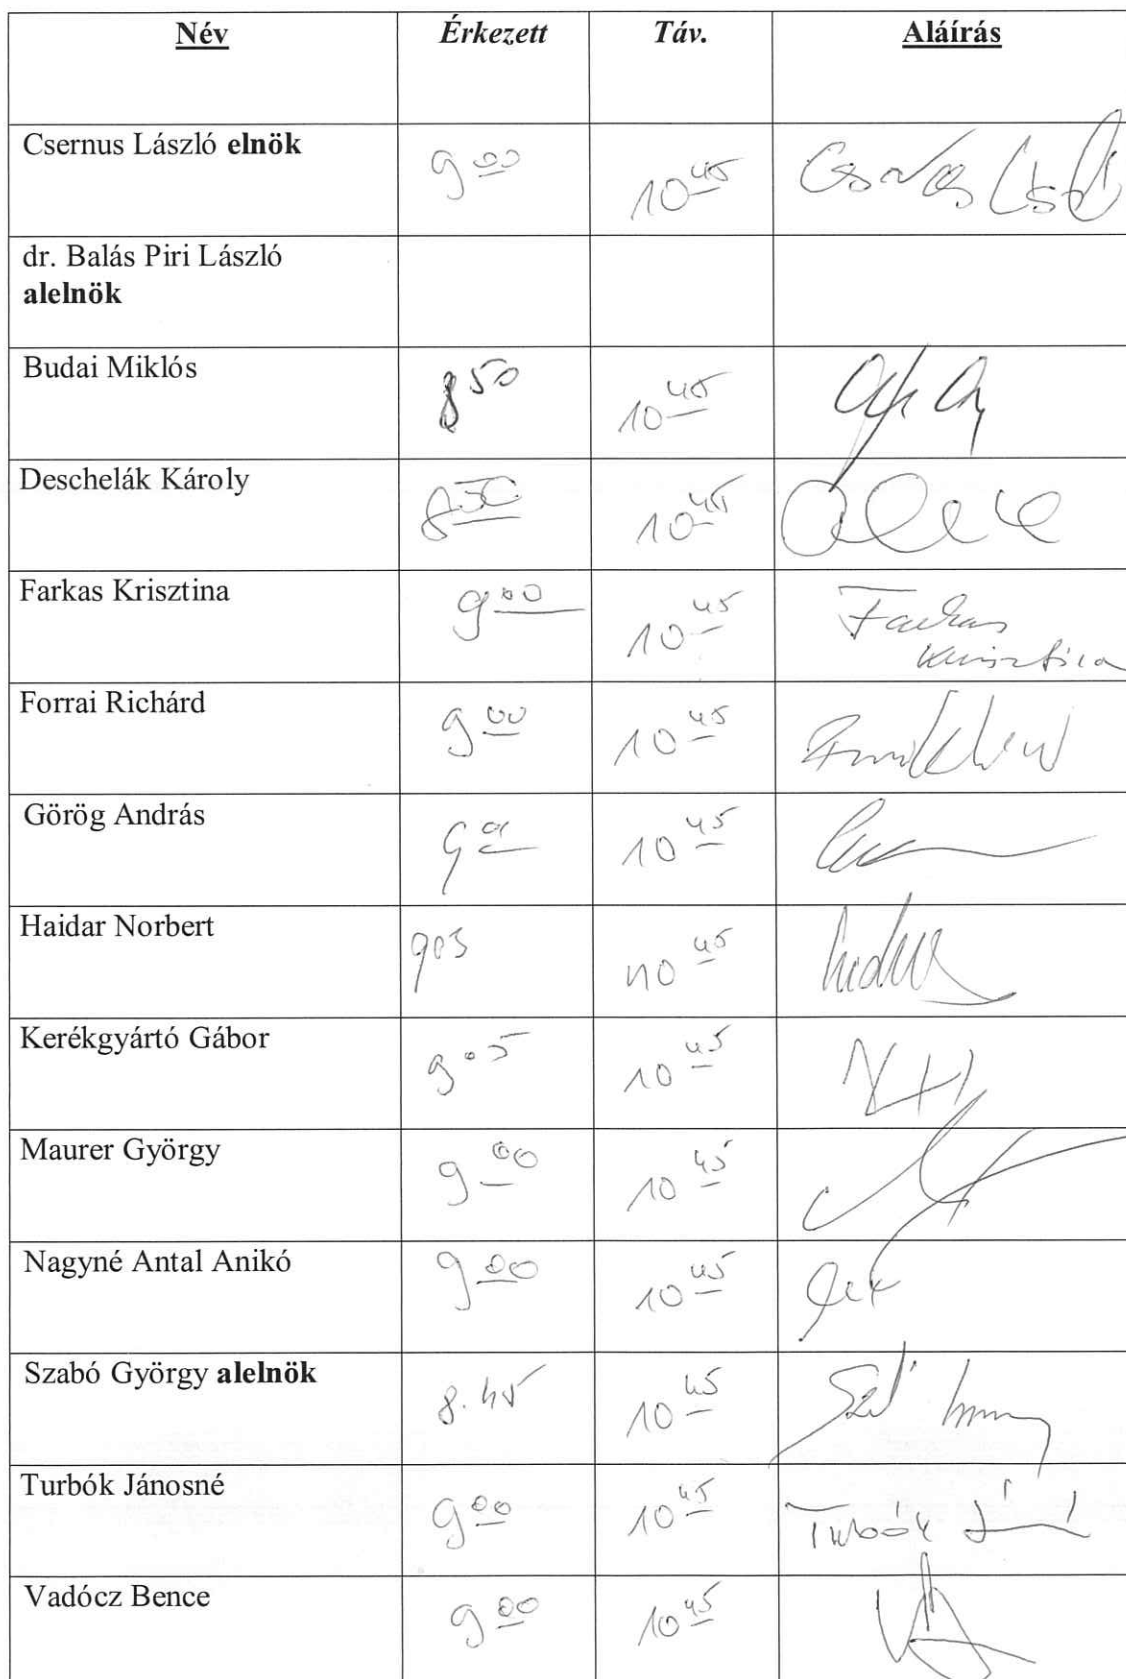 Név Érkezett Táv. Aláírás
Csernus László elnök 9 00 10 45
dr. Balás Piri László
alelnök
Budai Miklós 8 50 10 45
Deschelák Károly 8 50 10 45
Farkas Krisztina 9 00 10 45 Farkas
Krisztina
Forrai Richárd 9 00 10 45
Görög András 10 45
Haidar Norbert 903 10 45
Kerékgyártó Gábor 9 05 10 45
Maurer György 9 00 10 45
Nagyné Antal Anikó 9 00 10 45
Szabó György alelnök 8.45 10 45
Turbók Jánosné 9 00 10 45 Turbók
Vadócz Bence 9 00 10 45